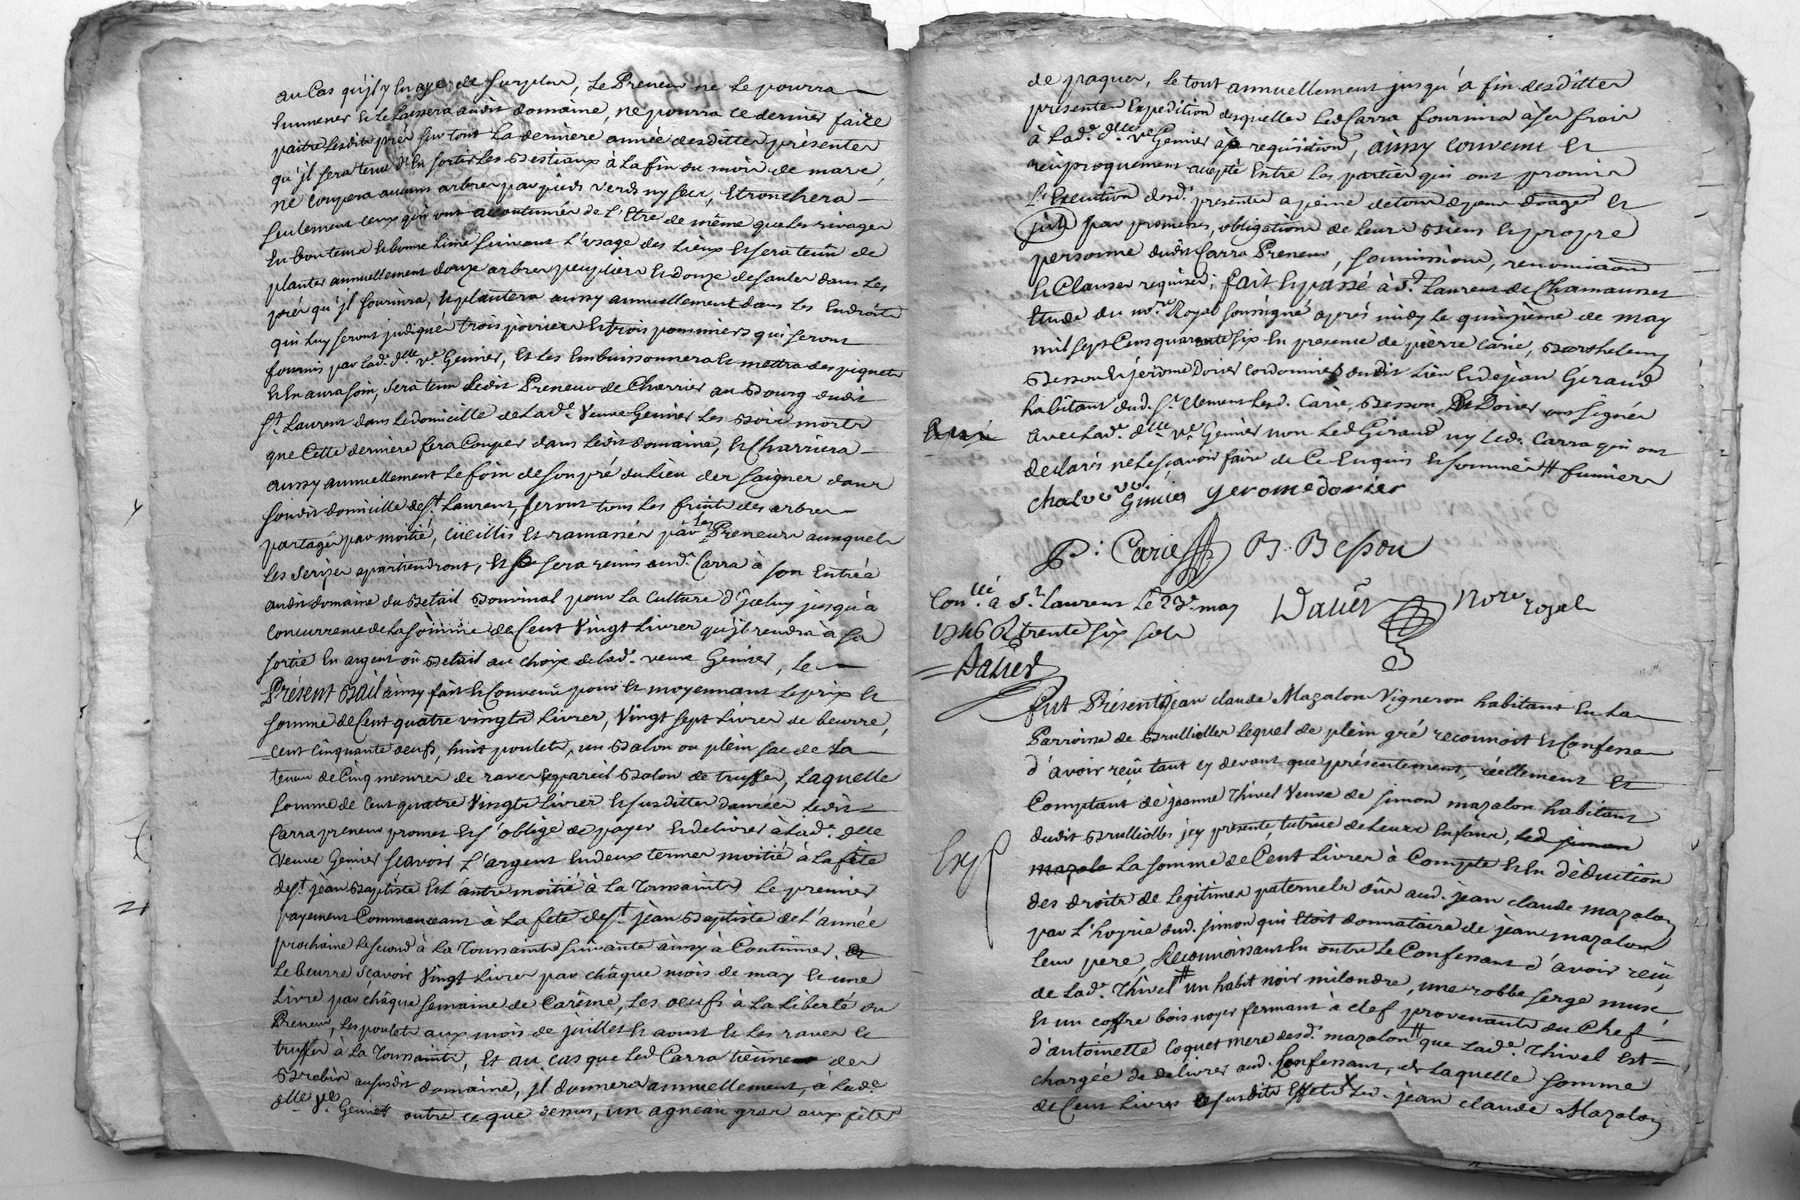 au Cas qu'jl y En aye de surplus, Le Preneur ne Le pourra
Emmener Et Le Laissera audit domaine, ne pourra Ce dernier faire
paitre Lesdits prés sur tout La derniere année desdittes presentes
qu'jl sera tenu d'En sortir Les Bestiaux à La fin du mois de mars,
ne Coupera aucuns arbres par pieds verds ny secs, Etronchera
seulement ceux qui ont accoutumés de L'Etre de même que Les rivages
En bon tems Et bonne Lune suivant L'usage des Lieux Et sera tenu de
planter annuellement douze arbres peupliers Et douze de saules dans Les
prés qu'jl fournira, Et plantera aussy annuellement dans Les Endroits
qui Luy seront jndiqués trois poiriers Et trois pommiers qui seront
fournis par Lad.e d.lle v.e Genier, Et Les Embuissonnera Et mettra des piquets
Et En aura soin, sera tenu Ledit Preneur de Charrier au Bourg dudit
S.t Laurent dans Le domicille de Lad.e Veuve Genier Les Bois morts
que Cette derniere fera Couper dans Ledit domaine, Et Charriera
aussy annuellement Le foin de son pré du Lieu der saigner dans
sondit domicille de S.t Laurent, seront tous Les fruits des arbres
partagés par moitié, Cüeillis Et ramassés par Les Preneurs auxquels
Les serises apartiendront, Et sera remis aud. Carra à son Entrée
audit domaine du Betail Bouvinal pour La Culture d'Jceluy jusqu'à
Concurrence de La somme de Cent Vingt Livres qu'jl rendra à sa
sortie En argent ou Betail au choix de Lad.e veuve Genier, Le
Présent Bail ainsy fait Et Convenu pour Et moyennant Le prix Et
somme de Cent quatre vingts Livres, Vingt sept Livres de beurre,
Cent Cinquante oeufs, huit poulets, un Balon ou plein sac de La
teneur de Cinq mesures de raves Et pareil Balon de truffes, Laquelle
somme de Cent quatre Vingts Livres Et susdittes danrées Ledit
Carra preneur promet Et s'oblige de payer Et delivrer à Lad.e d.lle
Veuve Genier sçavoir L'argent En deux termes moitié à La fête
de S.t jean Baptiste Et L'autre moitié à La Toussaints Le premier
payement Commenceant à La fete de S.t jean Baptiste de L'année
prochaine Le second à La Toussaints suivante ainsy à Continüer,
Le beurre sçavoir Vingt Livres par châque mois de may Et une
Livre par châque semaine de Carême, Les oeufs à La Liberté du
Preneur, Les poulets aux mois de juillet Et aoust Et Les raves Et
truffes à La Toussaints, Et au cas que Led Carra tienne des
Brebis au susdit domaine, jl donnera annuellement, à Lad.e
d.lle v.e Genier outre ce que dessus, un agneau gras aux fêtes
de paques, Le tout annuellement jusqu'à fin desdittes
presentes Expedition desquelles Led Carra fournira à ses frais
à Lad.e d.lle v.e Genier à sa requisition, ainsy convenu Et
reciproquement accepté Entre Les parties qui ont promis
L'Execution desd. presentes a peine de tous depens domages Et
jnts par promesses, obligations de Leurs Biens Et propre
personne dudit Carra Preneur, soumissions, renonciaons
Et Clauses requises; fait Et passé à S.t Laurent de Chamausset
Etude du no.re Royal soussigné aprés midy Le quinzième de may
mil sept Cens quarante six En presence de pierre Carie, Barthelemy
Besson Et jerome Dorier Cordonnier dudit Lieu Et de jean Giraud
habitant dud. S.t Clement Lesd. Carie, Besson, Et Dorier ont signés
avec Lad.e d.lle v.e Genier non Led Giraud ny Led. Carra qui ont
declaré ne Le scavoir faire de Ce Enquis Et sommés # fumiers
Chal ve Ginier Jerome dorier
P. Carie B. Besson
Con.llé à S.t Laurent Le 23.e may Dauer Nore royal
1746 R trente six sols
Dauer
Fut Présent jean claude Mazalon Vigneron habitant En La
Parroisse de Brullioles Lequel de plein gré reconnoit Et Confesse
d'avoir reçu tant cy devant que présentement, réellement Et
Comptant de jeanne Thivel Veuve de simon mazalon habitant
dudit Brullioles jcy presente, tutrice de Leurs Enfans, Led simon
mazalo La somme de Cent Livres à Compte Et En déduction
des droits de Legitimes paternels dûs aud. jean claude mazalon
par L'hoyrie dud. simon qui Etoit donnataire de jean mazalon
Leur pere, Reconnoissant En outre Le Confessant d'avoir reçu
de Lad.e Thivel # un habit noir milondre, une robbe serge musc
Et un coffre bois noyer fermant à clef provenants du Chef
d'antoinette Coquet mere desd.s mazalon # que Lad.e Thivel Est
chargée de délivrer aud. Confessant, de Laquelle somme
de Cent Livres Et susdits Effets Led. jean claude Mazalon
Exp